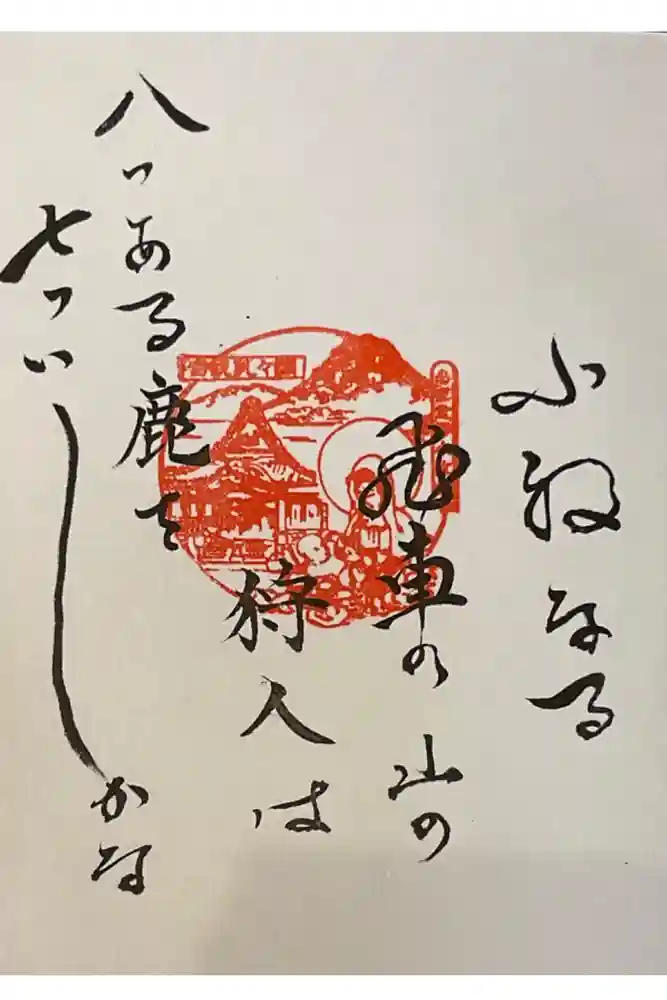 小なる
飛車の山の
狩人は
八ツある鹿を
七ツいしかな